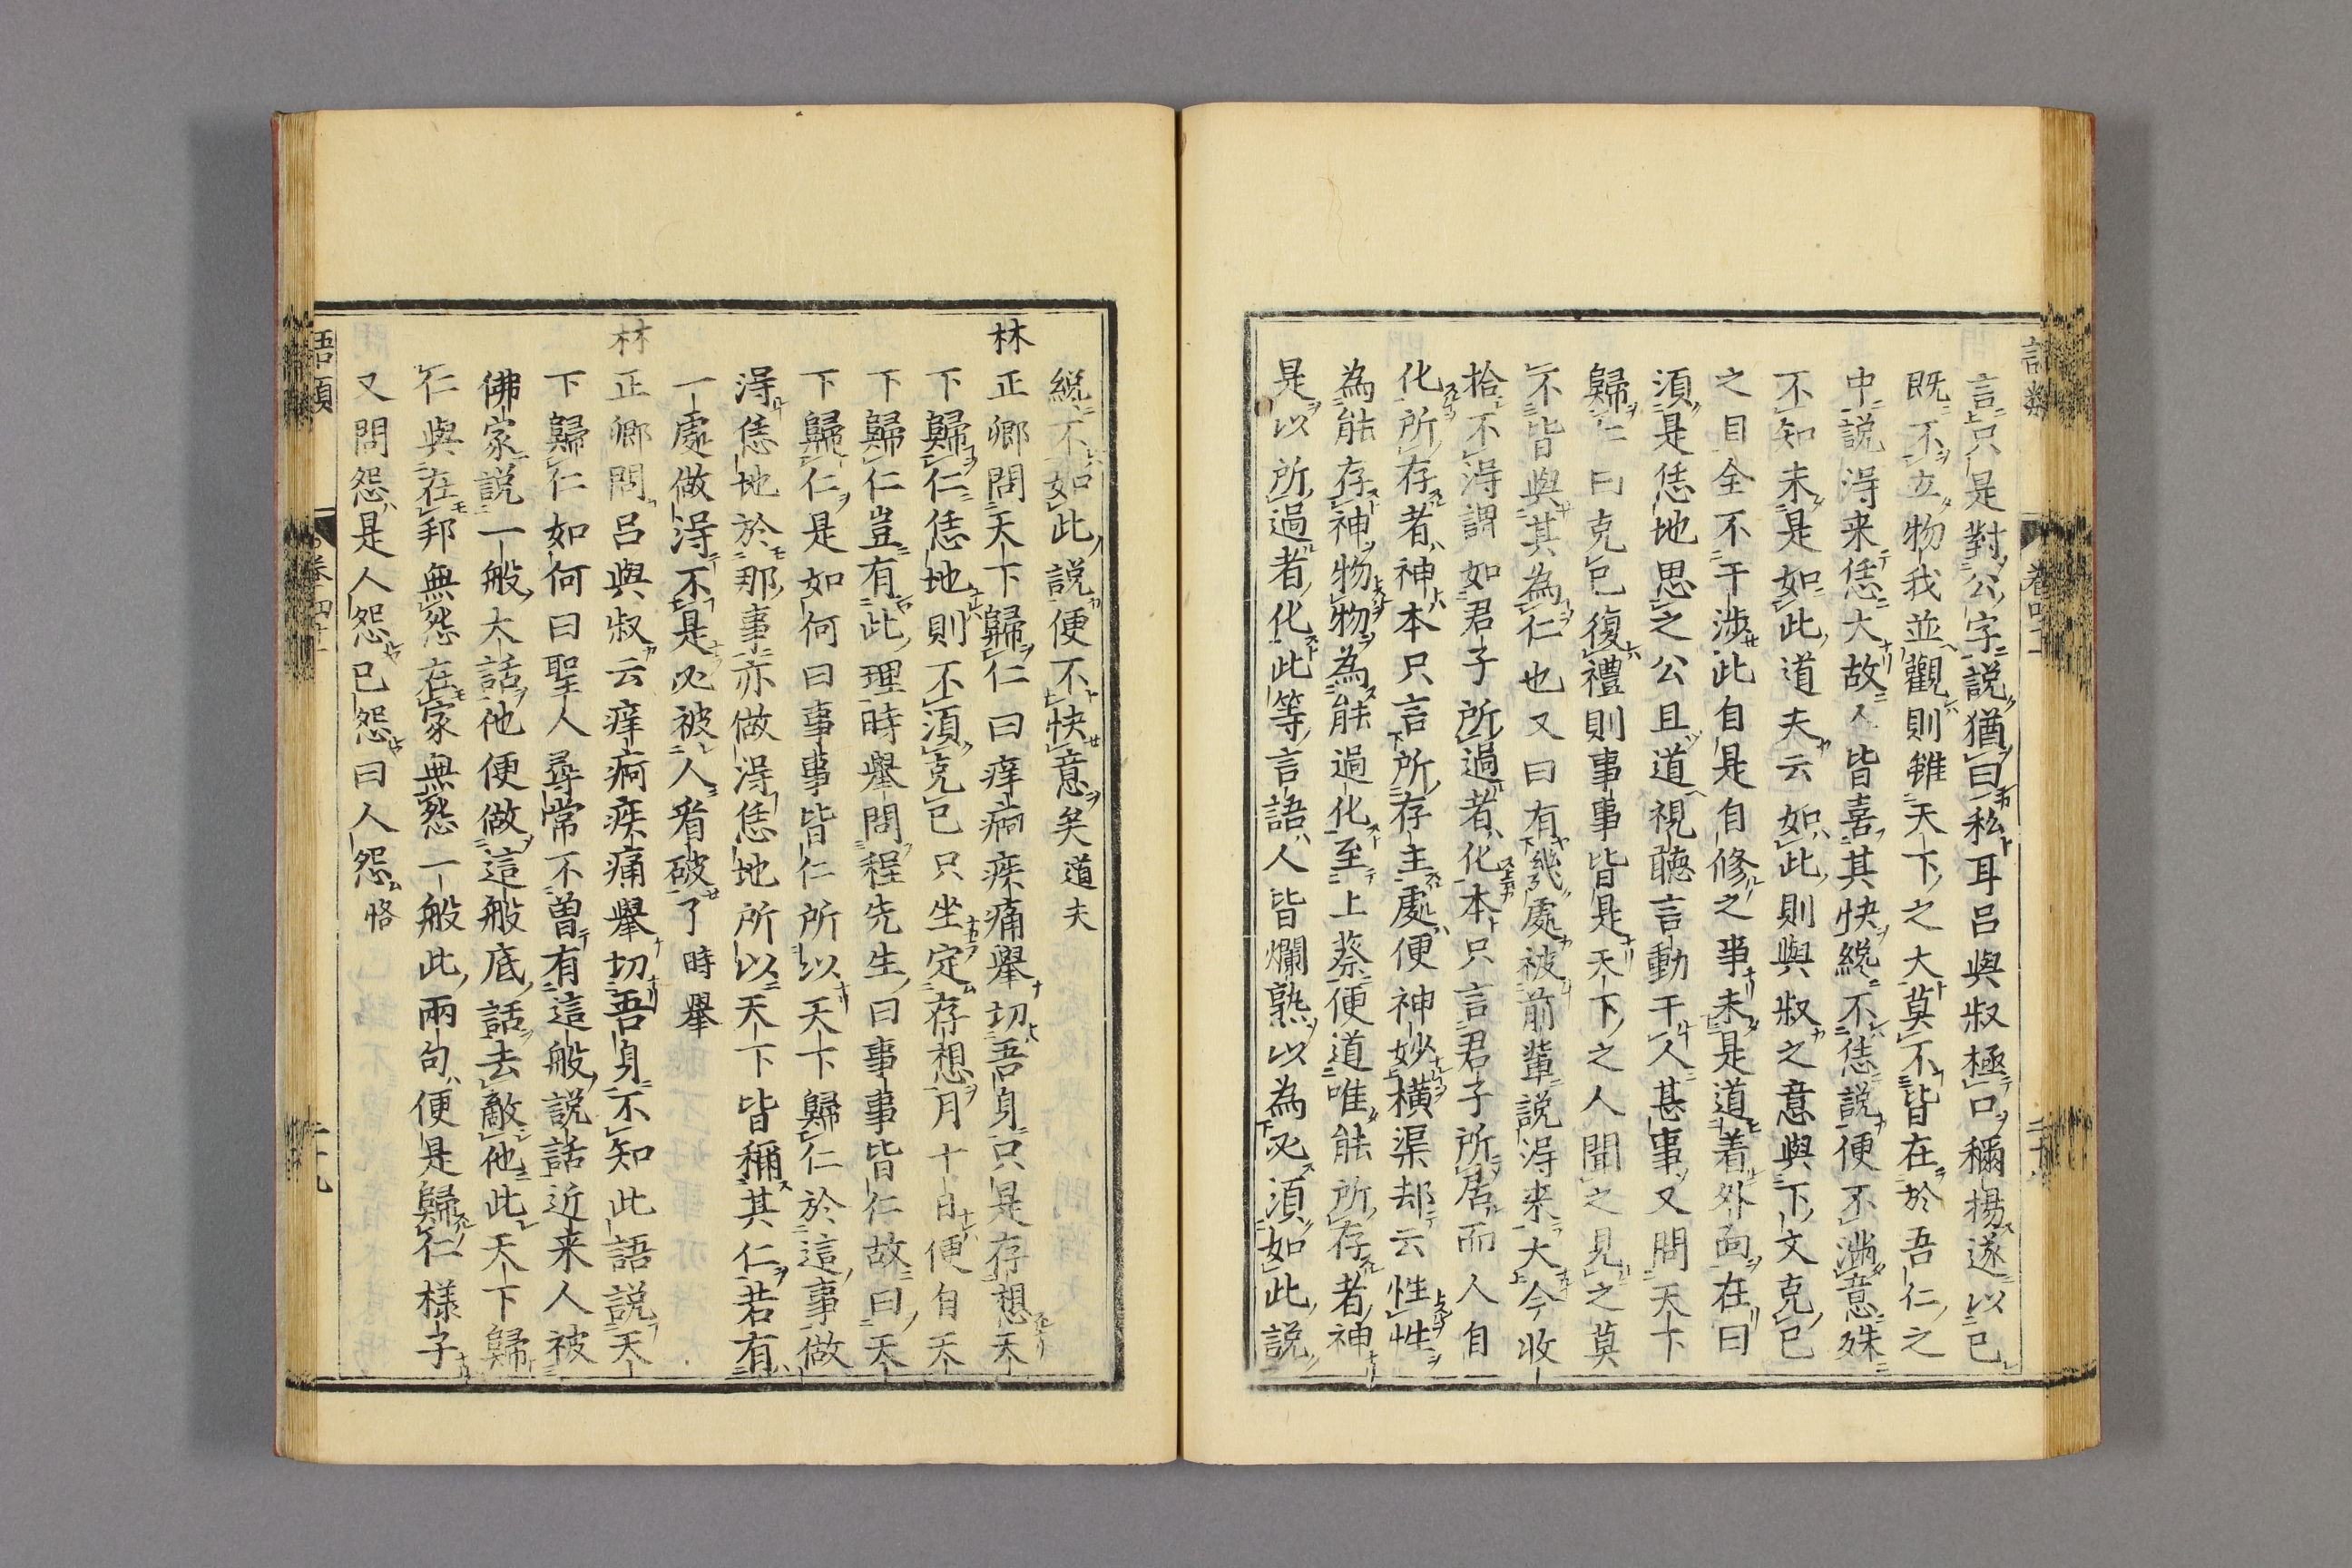 語類
卷四十一
言只是對公字說猶曰私耳呂與叔極口稱揚遂以已
既不立物我並觀則雖天下之大莫不皆在於吾仁之
中說得来恁大故人皆喜其快纔不恁說便不滿意殊
不知未是如此道夫云如此則與叔之意與下文克已
之目全不干涉此自是自修之事未是道着外面在曰
須是恁地思之公且道視聽言動干人甚事又問天下
歸仁曰克已復禮則事事皆是天下之人聞之見之莫
不皆與其為仁也又曰有幾處被前輩說得来大今收
拾不得謂如君子所過者化本只言君子所居而人自
化所存者神本只言所存主處便神妙橫渠却云性性
為能存神物物為能過化至上蔡便道唯能所存者神
是以所過者化此等言語人皆爛熟以為必須如此說
纔不如此說便不快意矣道夫
林正卿問天下歸仁曰痒痾疾痛舉切吾身只是存想天
下歸仁恁地則不須克已只坐定存想月十日便自天
下歸仁豈有此理時舉問程先生曰事事皆仁故曰天
下歸仁是如何曰事事皆仁所以天下歸仁於這事做
得恁地於那事亦做得恁地所以天下皆稱其仁若有
一處做得不是必被人看破了時舉
林正卿問呂與叔云痒痾疾痛舉切吾身不知此語說天
下歸仁如何曰聖人尋常不曾有這般說話近来人被
佛家說一般大話他便做這般底話去敵他此天下歸
仁與在邦無怨在家無怨一般此兩句便是歸仁樣子
又問怨是人怨已怨曰人怨恪
語類
卷四十一
二十九